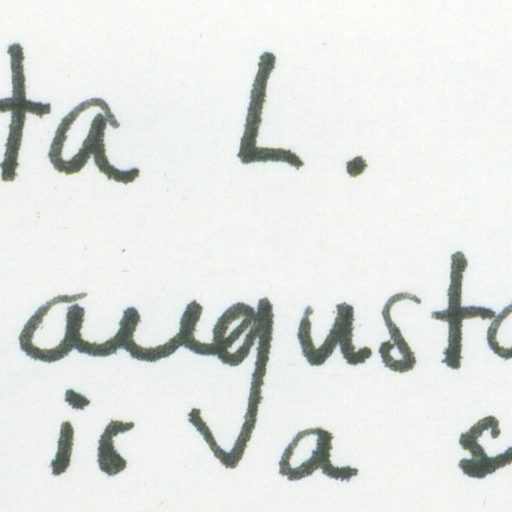 ta L.
augusta
is a s